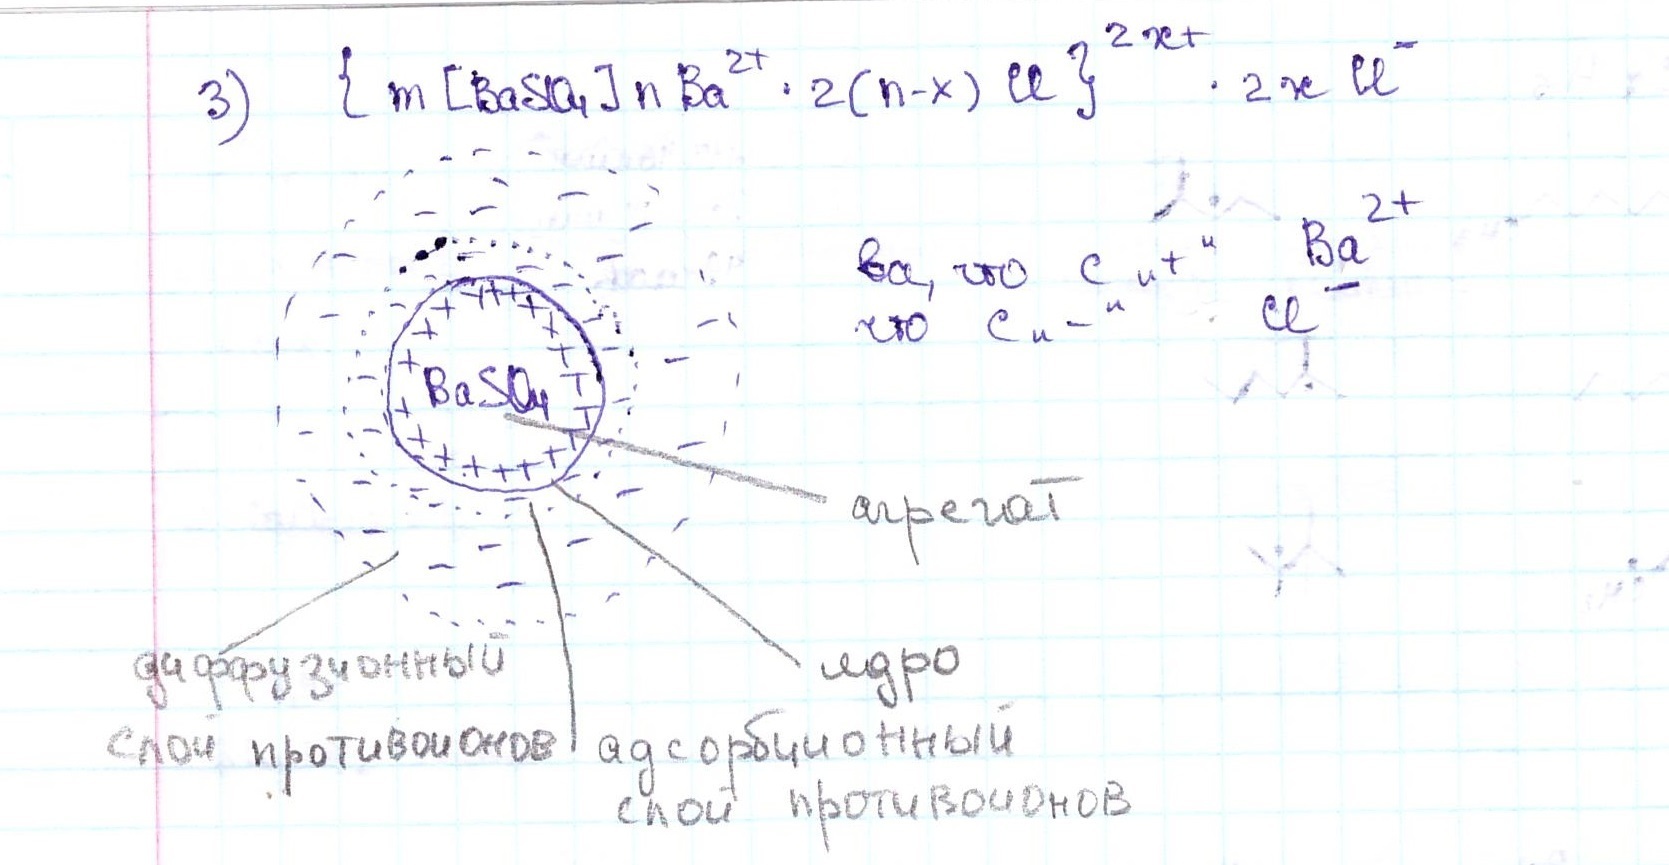 3) { m [BaSO₄] n Ba²⁺ · 2(n-x) Cl }²ˣ⁺ · 2x Cl⁻
ва, что с „+“ Ba²⁺
что с „-“ Cl⁻
BaSO₄
агрегат
диффузионный слой противоионов
ядро
адсорбционный слой противоионов